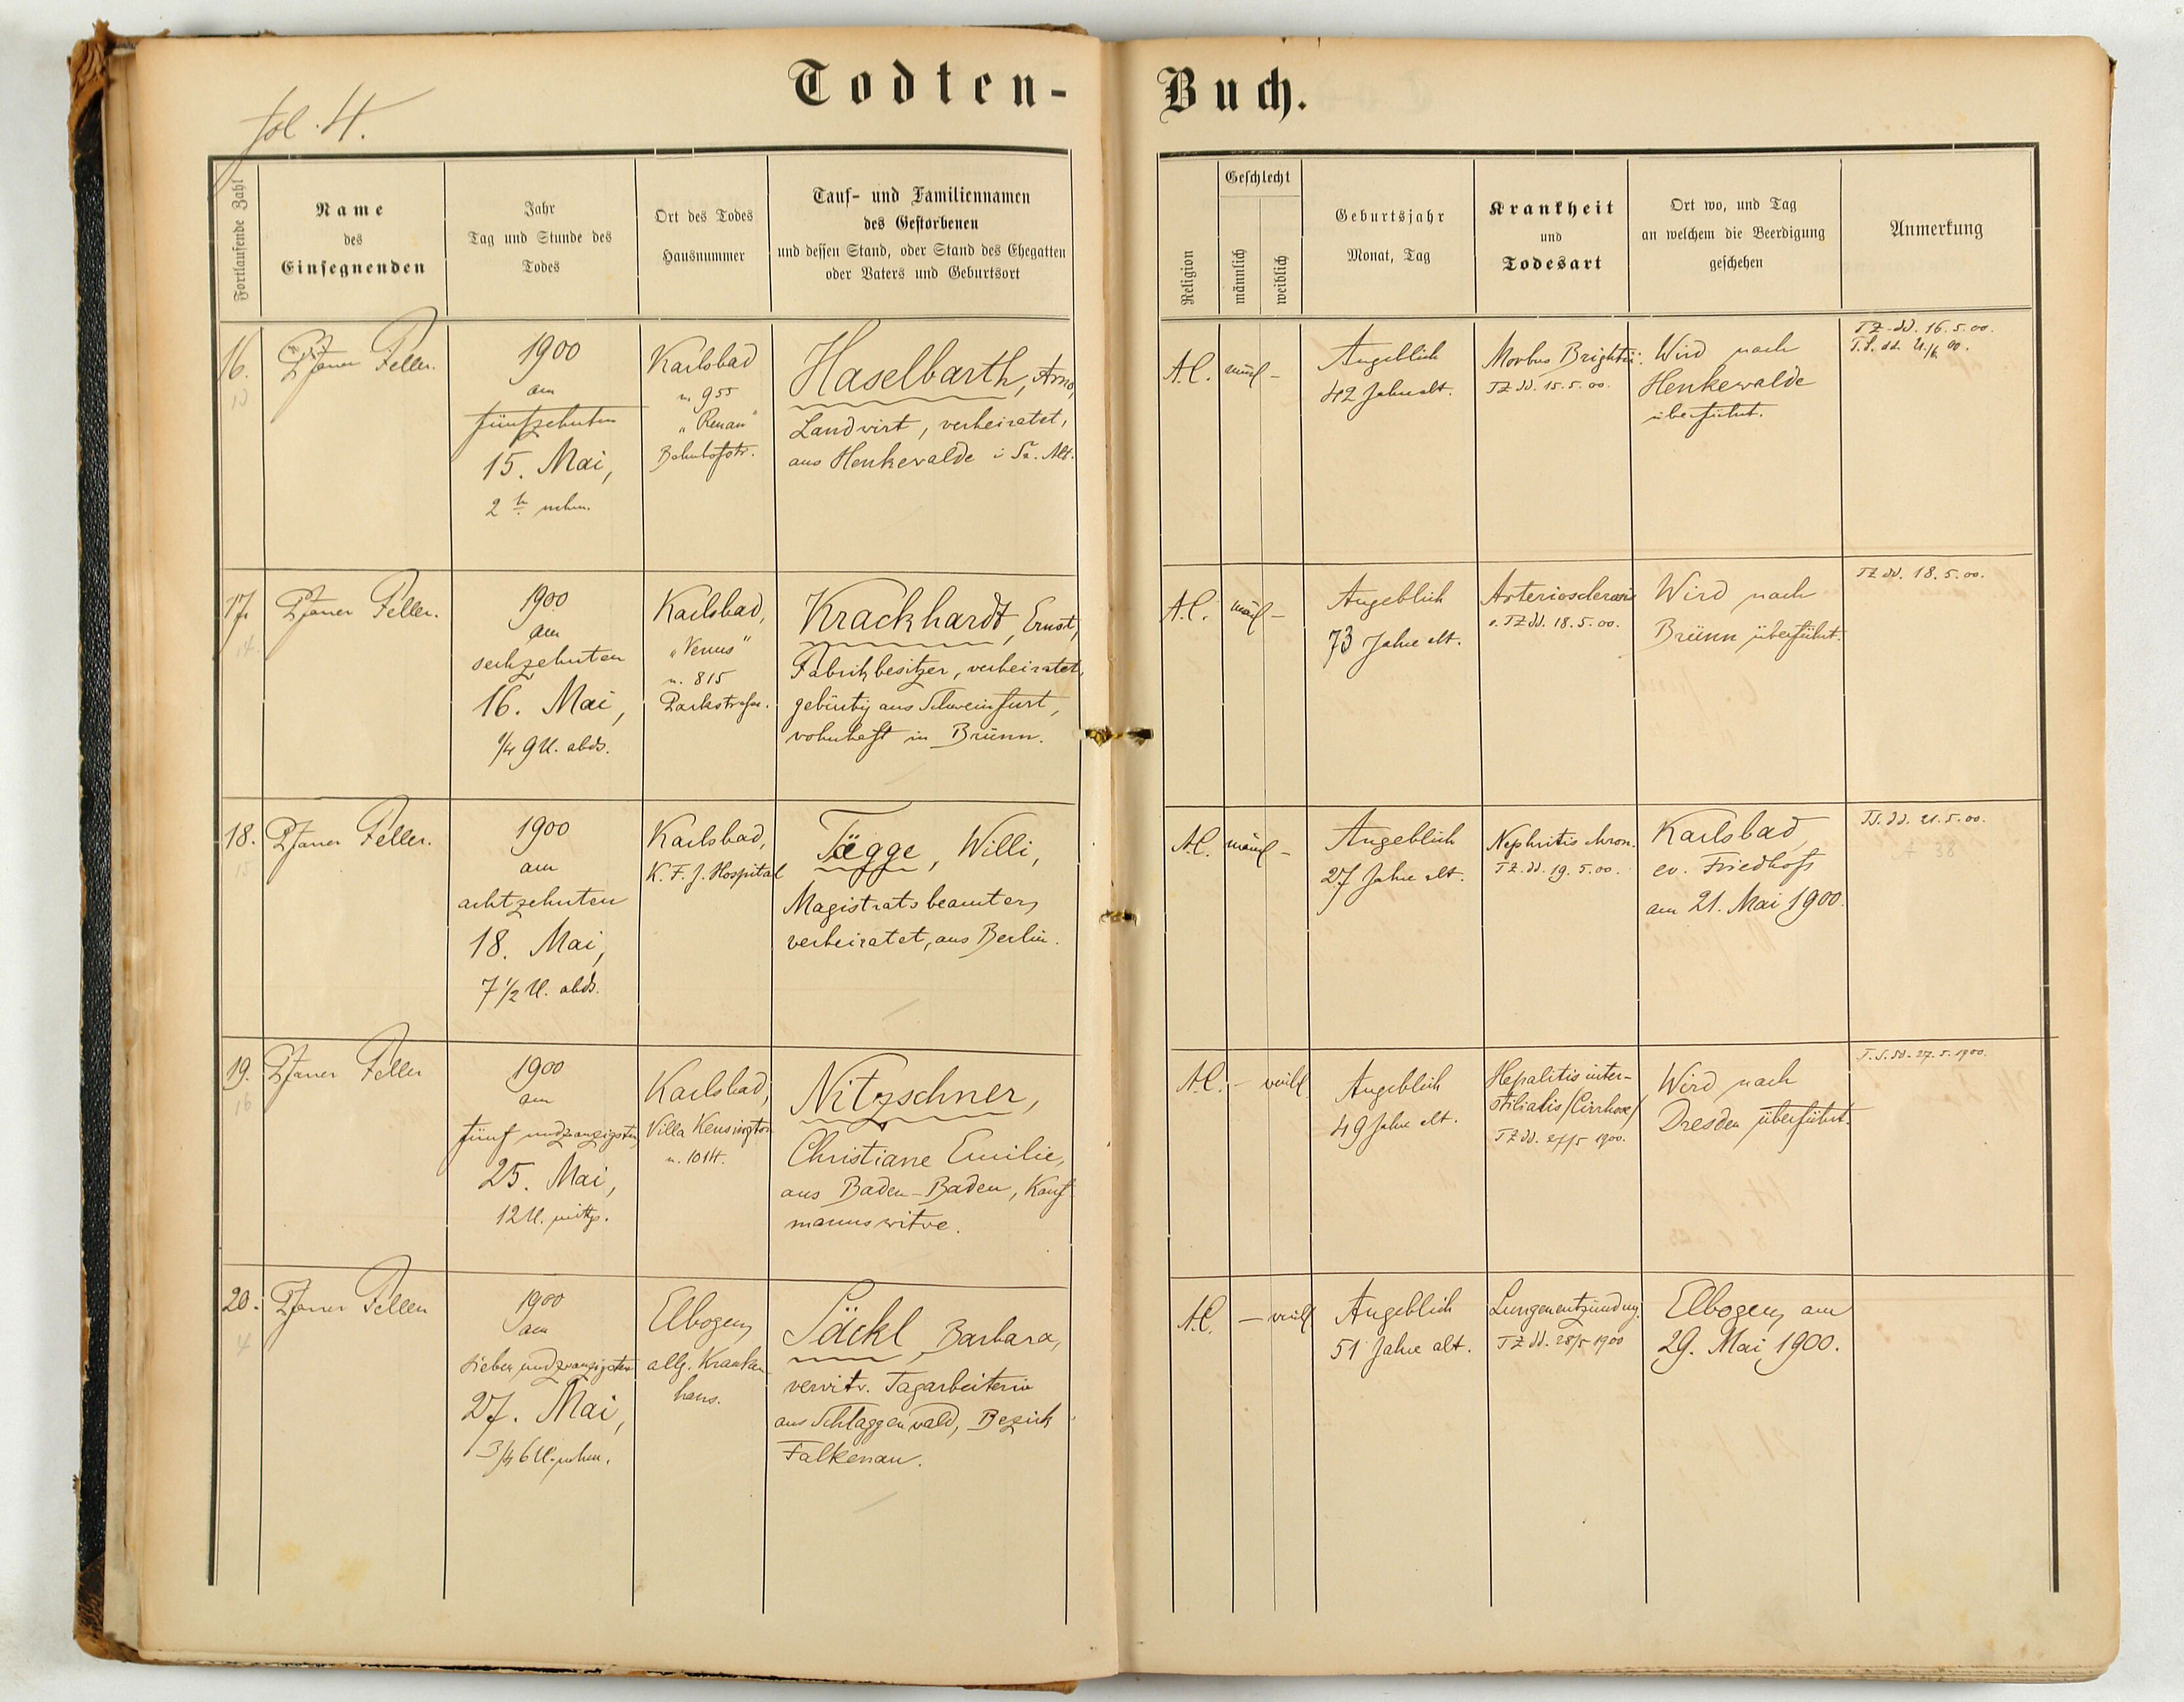 fol. 4.
Todten-Buch.
Fortlaufende Zahl
Name
des
Einsegnenden
Jahr
Tag und Stunde des
Todes
Ort des Todes
Hausnummer
Tauf- und Familiennamen
des Gestorbenen
und dessen Stand, oder Stand des Ehegatten
oder Vaters und Geburtsort
Religion
Geschlecht
männlich
weiblich
Geburtsjahr
Monat, Tag
Krankheit
und
Todesart
Ort wo, und Tag
an welchem die Beerdigung
geschehen
Anmerkung
16.
13
Pfarrer Feller.
1900
am
fünfzehnten
15. Mai,
2 h nchm.
Karlsbad
n. 955
"Renan"
Bahnhofstr.
Haselbarth, Arno,
Landwirt, verheiratet,
aus Henkewalde i. Sa. Alt.
A.C.
männl -
Angeblich
42 Jahre alt.
Morbus Brightii.
TZ dd. 15.5.00.
Wird nach
Henkewalde
überführt.
TZ dd. 16.5.00.
17.
14.
Pfarrer Feller.
1900
am
sechzehnten
16. Mai,
1/4 9 U. abds.
Karlsbad,
"Venus"
n. 815
Parkstrasse.
Krackhardt, Ernst,
Fabrikbesitzer, verheiratet,
gebürtig aus Schweinfurt,
wohnhaft in Brünn.
A.C.
männl -
Angeblich
73 Jahre alt.
Arteriosclerosis
TZ dd. 18.5.00.
Wird nach
Brünn überführt.
TZ dd. 18.5.00.
18.
15
Pfarrer Feller.
1900
am
achtzehnten
18. Mai,
7 1/2 U. abds.
Karlsbad,
K. F. J. Hospital
Tägge, Willi,
Magistratsbeamter,
verheiratet, aus Berlin.
A.C.
männl -
Angeblich
27 Jahre alt.
Nephritis chron.
TZ. dd. 19.5.00.
Karlsbad,
ev. Friedhof
am 21. Mai 1900.
TS. dd. 21.5.00.
A 38
19.
16
Pfarrer Feller
1900
am
fünfundzwanzigsten
25. Mai,
12 U. mittg.
Karlsbad,
Villa Kensington
n. 1014.
Nitzschner,
Christiane Emilie,
aus Baden-Baden, Kauf-
mannswitwe.
A.C.
- weibl
Angeblich
49 Jahre alt.
Hepatitis inter-
stitialis /Cirrhose/
TZ dd. 27/5 1900.
Wird nach
Dresden überführt.
T.S. dd. 27.5.1900.
20.
4
Pfarrer Feller
1900
am
siebenundzwanzigsten
27. Mai,
3/4 6 U. nchm.
Elbogen,
allg. Kranken-
haus.
Säckl, Barbara,
verwitw. Tagarbeiterin
aus Schlaggenwald, Bezirk
Falkenau.
A.C.
- weibl
Angeblich
51 Jahre alt.
Lungenentzündung.
TZ dd. 28/5 1900
Elbogen, am
29. Mai 1900.